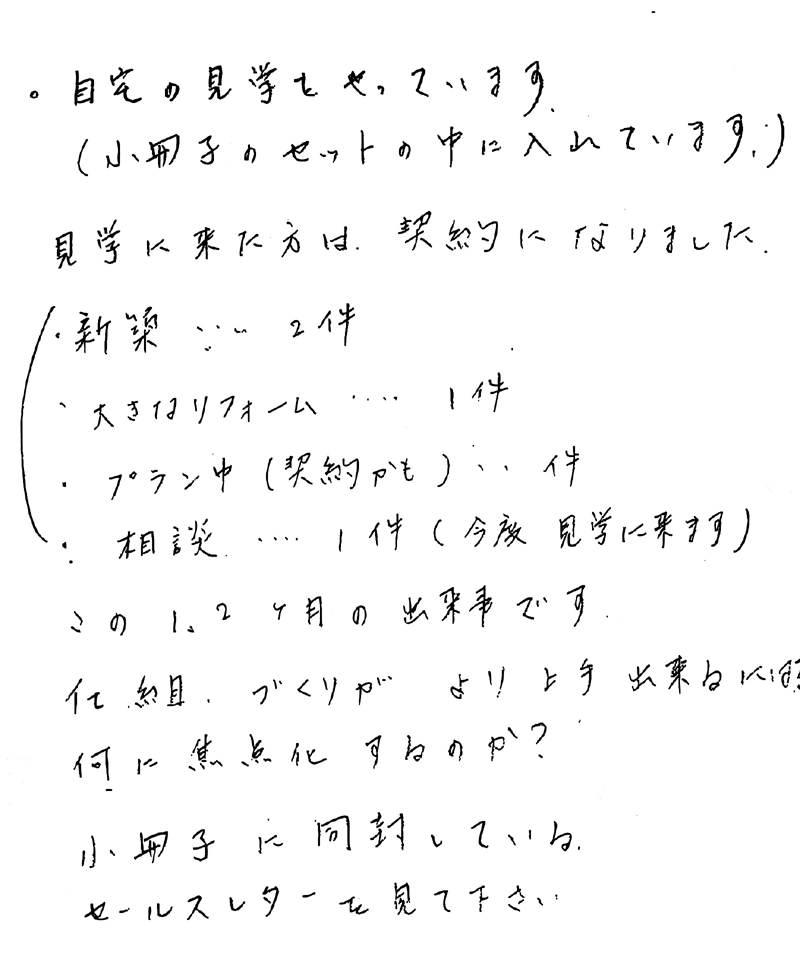 。自宅の見学をやっています。
(小冊子のセットの中に入れています。)
見学に来た方は、契約になりました。
・新築 ‥‥ 2件
・大きなリフォーム ‥‥ 1件
・プラン中(契約かも)‥ 件
・相談 ‥‥ 1件(今度 見学に来ます)
この1、2ヶ月の出来事です。
仕組、づくりが より上手出来るには
何に焦点化するのか?
小冊子に同封している。
セールスレターを見て下さい